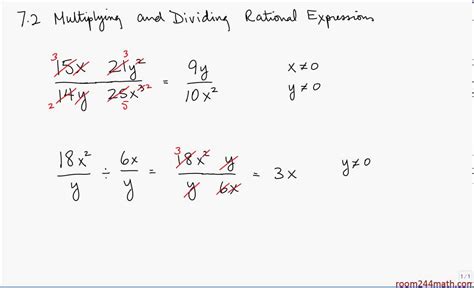 7.2 Multiplying and Dividing Rational Expressions
3 3
15x 21y² / 14y 25x³ = 9y / 10x² x ≠ 0
2 5 2 y ≠ 0
3
18x² / y ÷ 6x / y = 18x² y / y 6x = 3x y ≠ 0
1/1
room244math.com